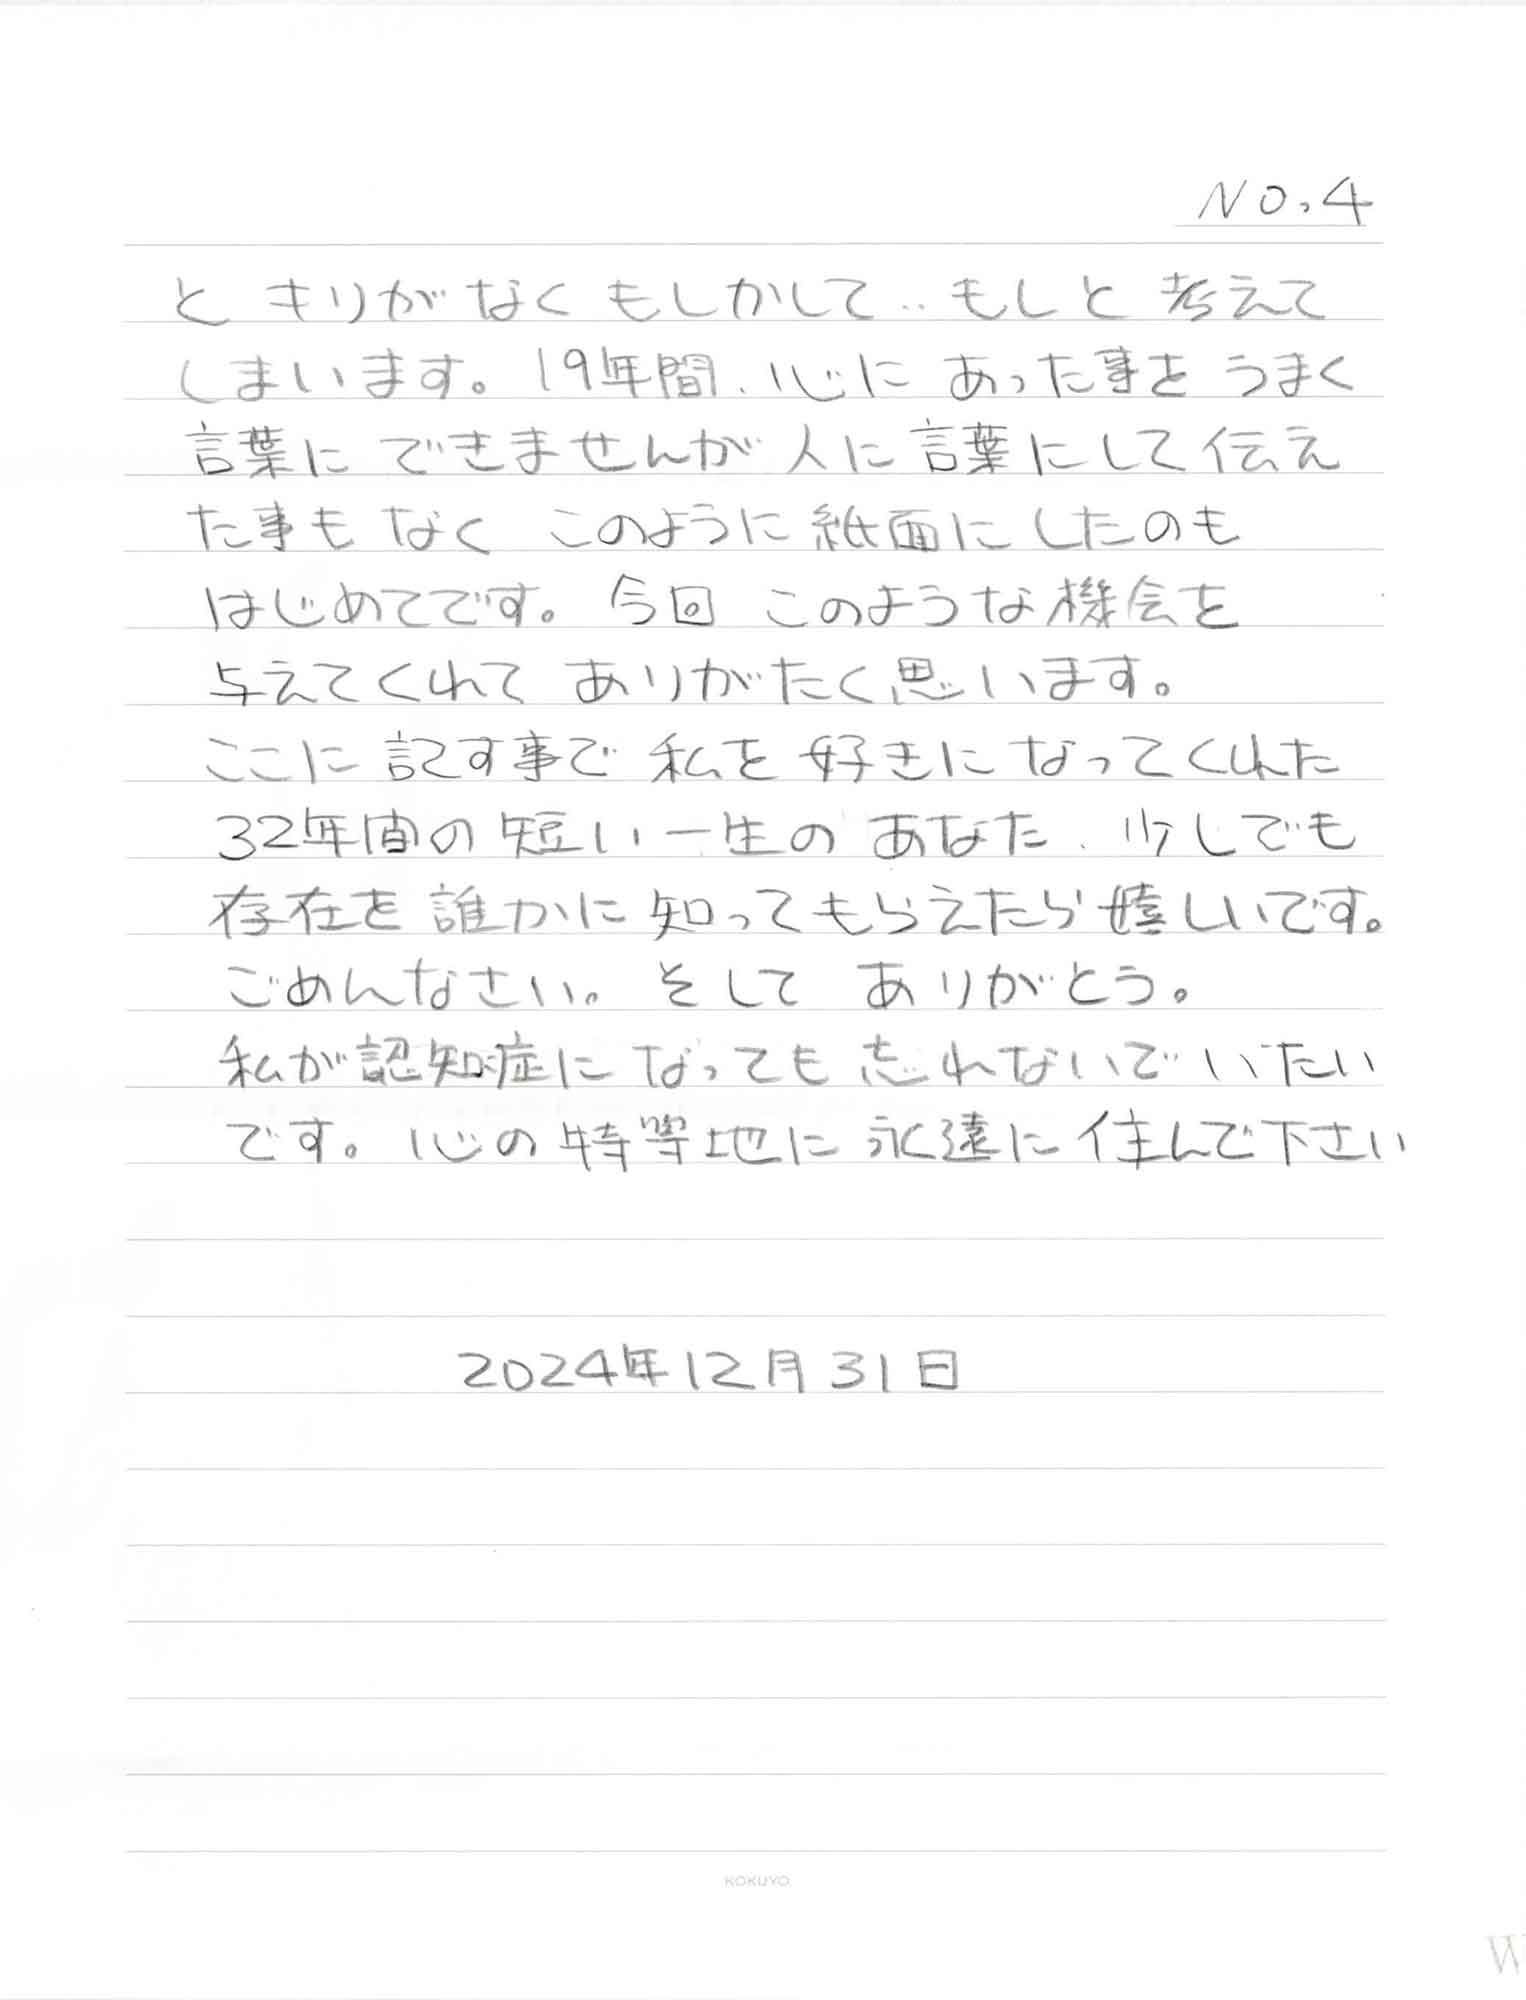 NO.4
と キリがなくもしかして‥もしと 考えて
しまいます。19年間、心に あった事を うまく
言葉に できませんが 人に 言葉にして伝え
た事も なく このように 紙面に したのも
はじめてです。 今回 このような機会を
与えてくれて ありがたく思います。
ここに 記す事で 私を 好きに なってくれた
32年間の 短い一生の あなた、少しでも
存在を 誰かに 知ってもらえたら嬉しいです。
ごめんなさい。 そして ありがとう。
私が認知症に なっても 忘れないで いたい
です。心の 特等地に 永遠に 住んで下さい
2024年12月31日
KOKUYO
W